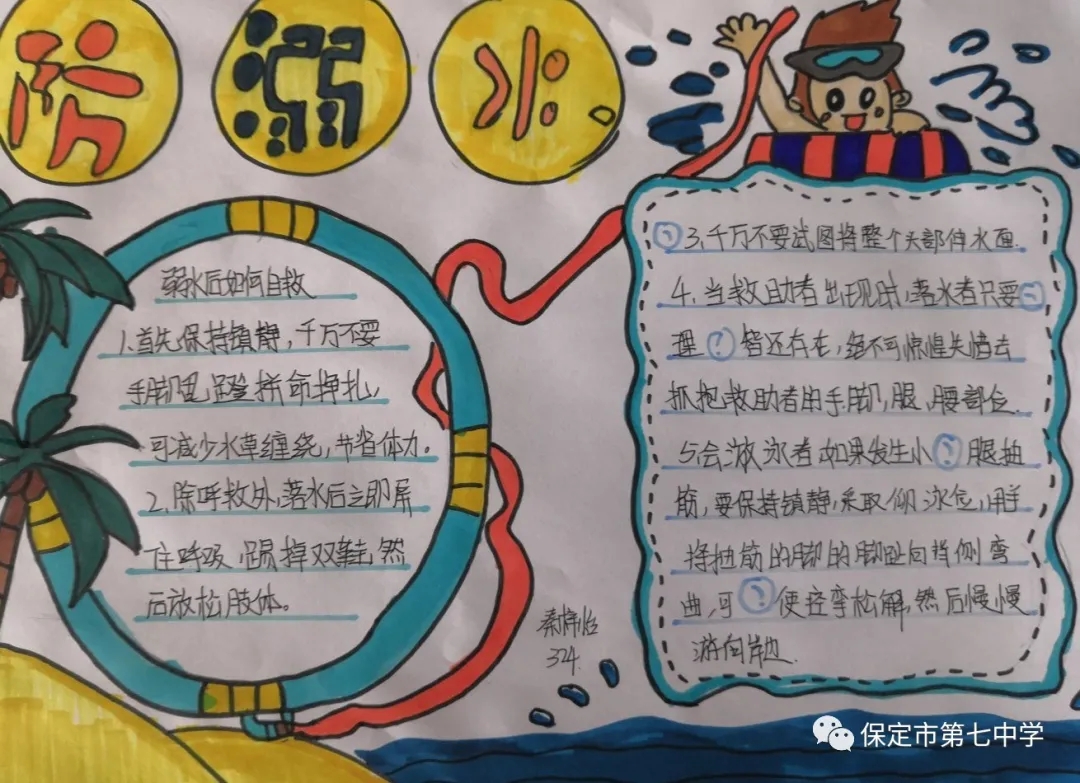 防溺水
溺水后如何自救
1.首先保持镇静，千万不要
手脚乱蹬拼命挣扎，
可减少水草缠绕，节省体力。
2.除呼救外，落水后立即屏
住呼吸，踢掉双鞋，然
后放松肢体。
秦
324
? 3.千万不要试图将整个头部伸水面.
4.当救助者出现时，落水者只要?
理?智还存在，绝不可惊惶失措去
抓抱救助者的手脚，腿，腰部位.
5.会游泳者如果发生小?腿抽
筋，要保持镇静，采取仰泳位，用手
将抽筋的脚的脚趾向背侧弯
曲，可?使痉挛松解，然后慢慢
游向岸边.
保定市第七中学